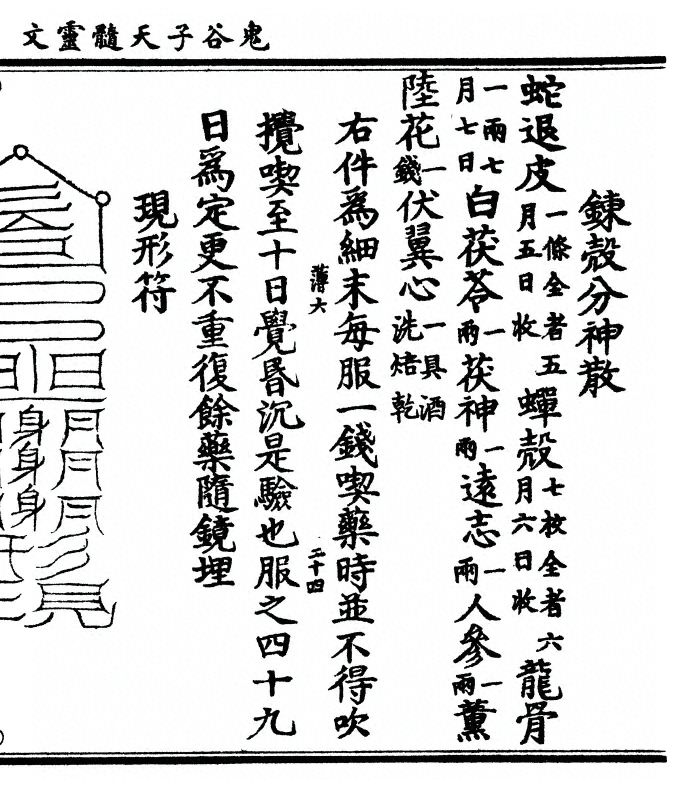 鬼谷子天髓靈文
鍊殼分神散
蛇退皮一條全者五月五日收蟬殼七枚全者六月六日收龍骨
一兩七月七日白茯苓一兩茯神一兩遠志一兩人參一兩薰
陸花一錢伏翼心一具酒洗焙乾
右件爲細末每服一錢喫藥時並不得吹
薄六
二十四
攪喫至十日覺昏沉是驗也服之四十九
日爲定更不重復餘藥隨鏡埋
現形符